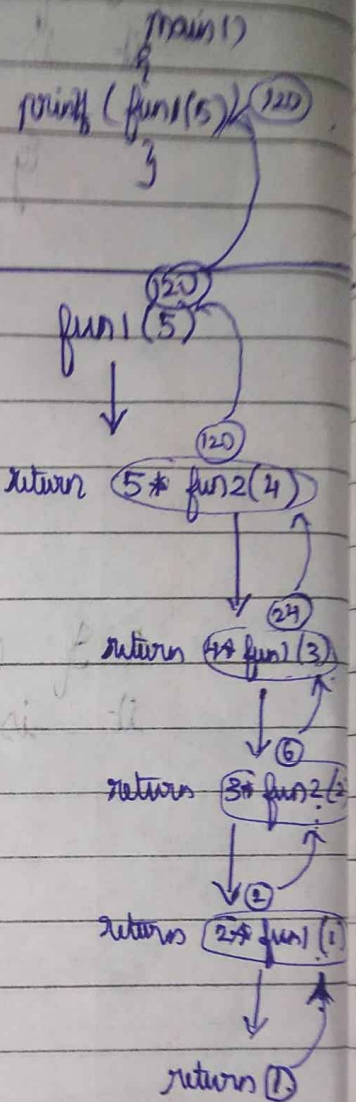 main()
{
printf (fun1(5)) 120
}
120
fun1 (5)
120
return 5* fun2(4)
24
return 4* fun1(3)
6
return 3* fun2(2)
2
return 2* fun1(1)
return 1